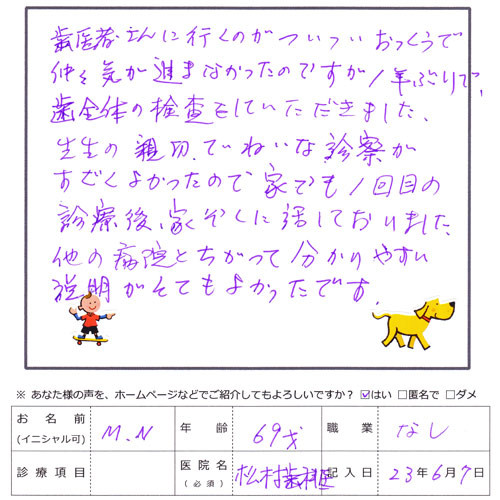 歯医者さんに行くのがついついおっくうで
仲々気が進まなかったのですが1年ぶりで、
歯全体の検査をしていただきました、
先生の親切、ていねいな診察が
すごくよかったので家でも1回目の
診療後、家ぞくに話しておりました
他の病院とちがって分かりやすい
説明がとてもよかったです.
※ あなた様の声を、ホームページなどでご紹介してもよろしいですか？ ☑はい □匿名で □ダメ
お名前 (イニシャル可) M.N 年齢 69才 職業 なし
診療項目 医院名 (必須) 松村歯科医 記入日 23年6月7日